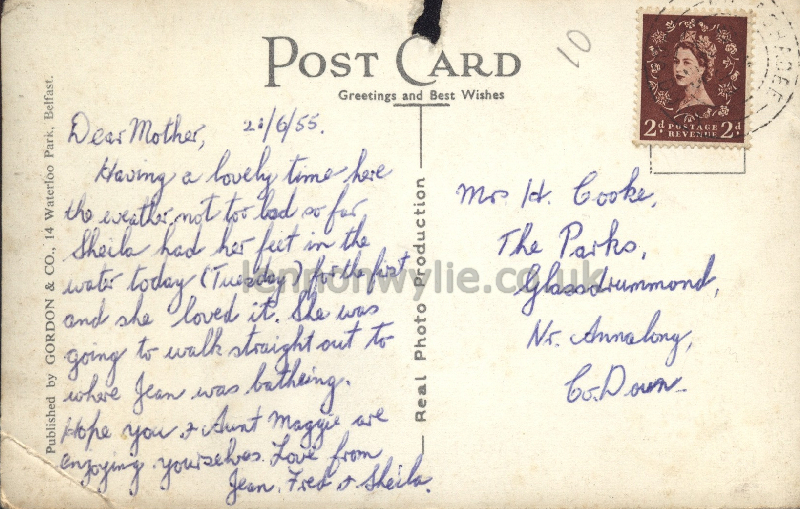 POST CARD
Greetings and Best Wishes
10
2d POSTAGE REVENUE 2d
Published by GORDON & CO., 14 Waterloo Park, Belfast.
Real Photo Production
Dear Mother, 21/6/55.
Having a lovely time here
the weather not too bad so far
Sheila had her feet in the
water today (Tuesday) for the first
and she loved it. She was
going to walk straight out to
where Jean was batheing.
Hope you & Aunt Maggie are
enjoying yourselves. Love from
Jean, Fred & Sheila.
Mrs H. Cooke,
The Parks,
Glassdrummond,
Nr. Annalong,
Co. Down.
lennonwylie.co.uk